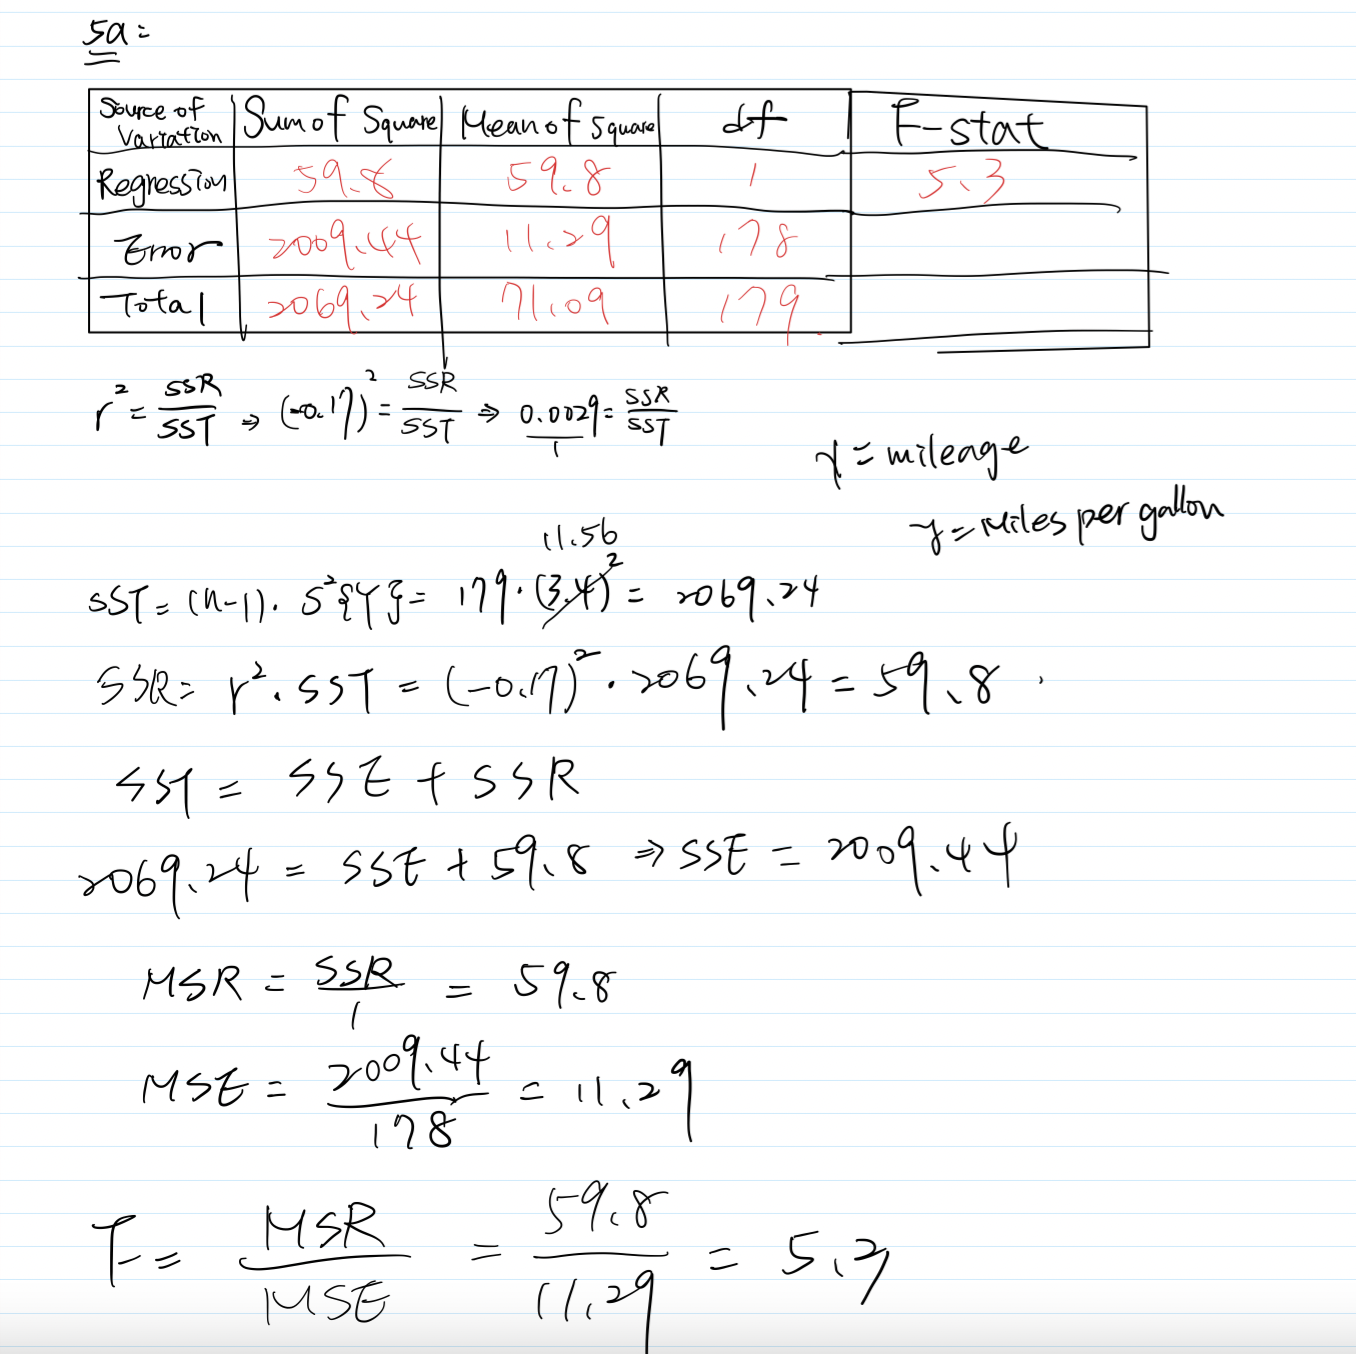 5a:
Source of Variation | Sum of Square | Mean of Square | df | F-stat
Regression | 59.8 | 59.8 | 1 | 5.3
Error | 2009.44 | 11.29 | 178
Total | 2069.24 | 71.09 | 179
r² = SSR/SST ⇒ (-0.17)² = SSR/SST ⇒ 0.0029/1 = SSR/SST
x = mileage
y = Miles per gallon
11.56
SST = (n-1) · S²{Y} = 179 · (3.4)² = 2069.24
SSR = r² · SST = (-0.17)² · 2069.24 = 59.8
SST = SSE + SSR
2069.24 = SSE + 59.8 ⇒ SSE = 2009.44
MSR = SSR/1 = 59.8
MSE = 2009.44/178 = 11.29
F = MSR/MSE = 59.8/11.29 = 5.3